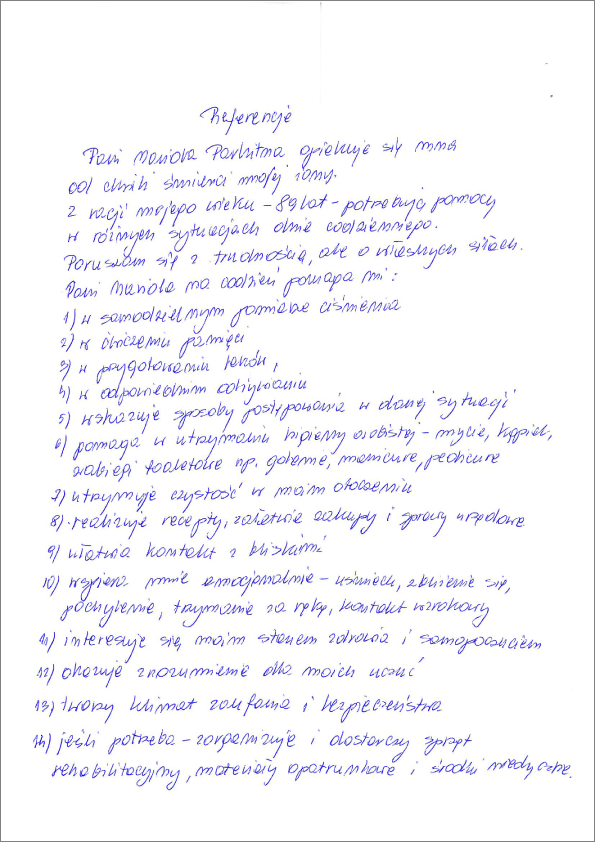 Referencje
Pani Mariola Parkitna opiekuje się mną
od chwili śmierci mojej żony.
Z racji mojego wieku - 89 lat - potrzebuję pomocy
w różnych sytuacjach dnia codziennego.
Poruszam się z trudnością, ale o własnych siłach.
Pani Mariola na codzień pomaga mi:
1) w samodzielnym pomiarze ciśnienia
2) w ćwiczeniu pamięci
3) w przygotowaniu leków,
4) w odpowiednim odżywianiu
5) wskazuje sposoby postępowania w danej sytuacji
6) pomaga w utrzymaniu higieny osobistej - mycie, kąpiel,
zabiegi toaletowe np. golenie, manicure, pedicure
7) utrzymuje czystość w moim otoczeniu
8) realizuje recepty, załatwia zakupy i sprawy urzędowe
9) ułatwia kontakt z bliskimi
10) wspiera mnie emocjonalnie - uśmiech, zbliżenie się,
pochylenie, trzymanie za rękę, kontakt wzrokowy
11) interesuje się moim stanem zdrowia i samopoczuciem
12) okazuje zrozumienie dla moich uczuć
13) tworzy klimat zaufania i bezpieczeństwa
14) jeśli potrzeba - zorganizuje i dostarczy sprzęt
rehabilitacyjny, materiały opatrunkowe i środki medyczne.